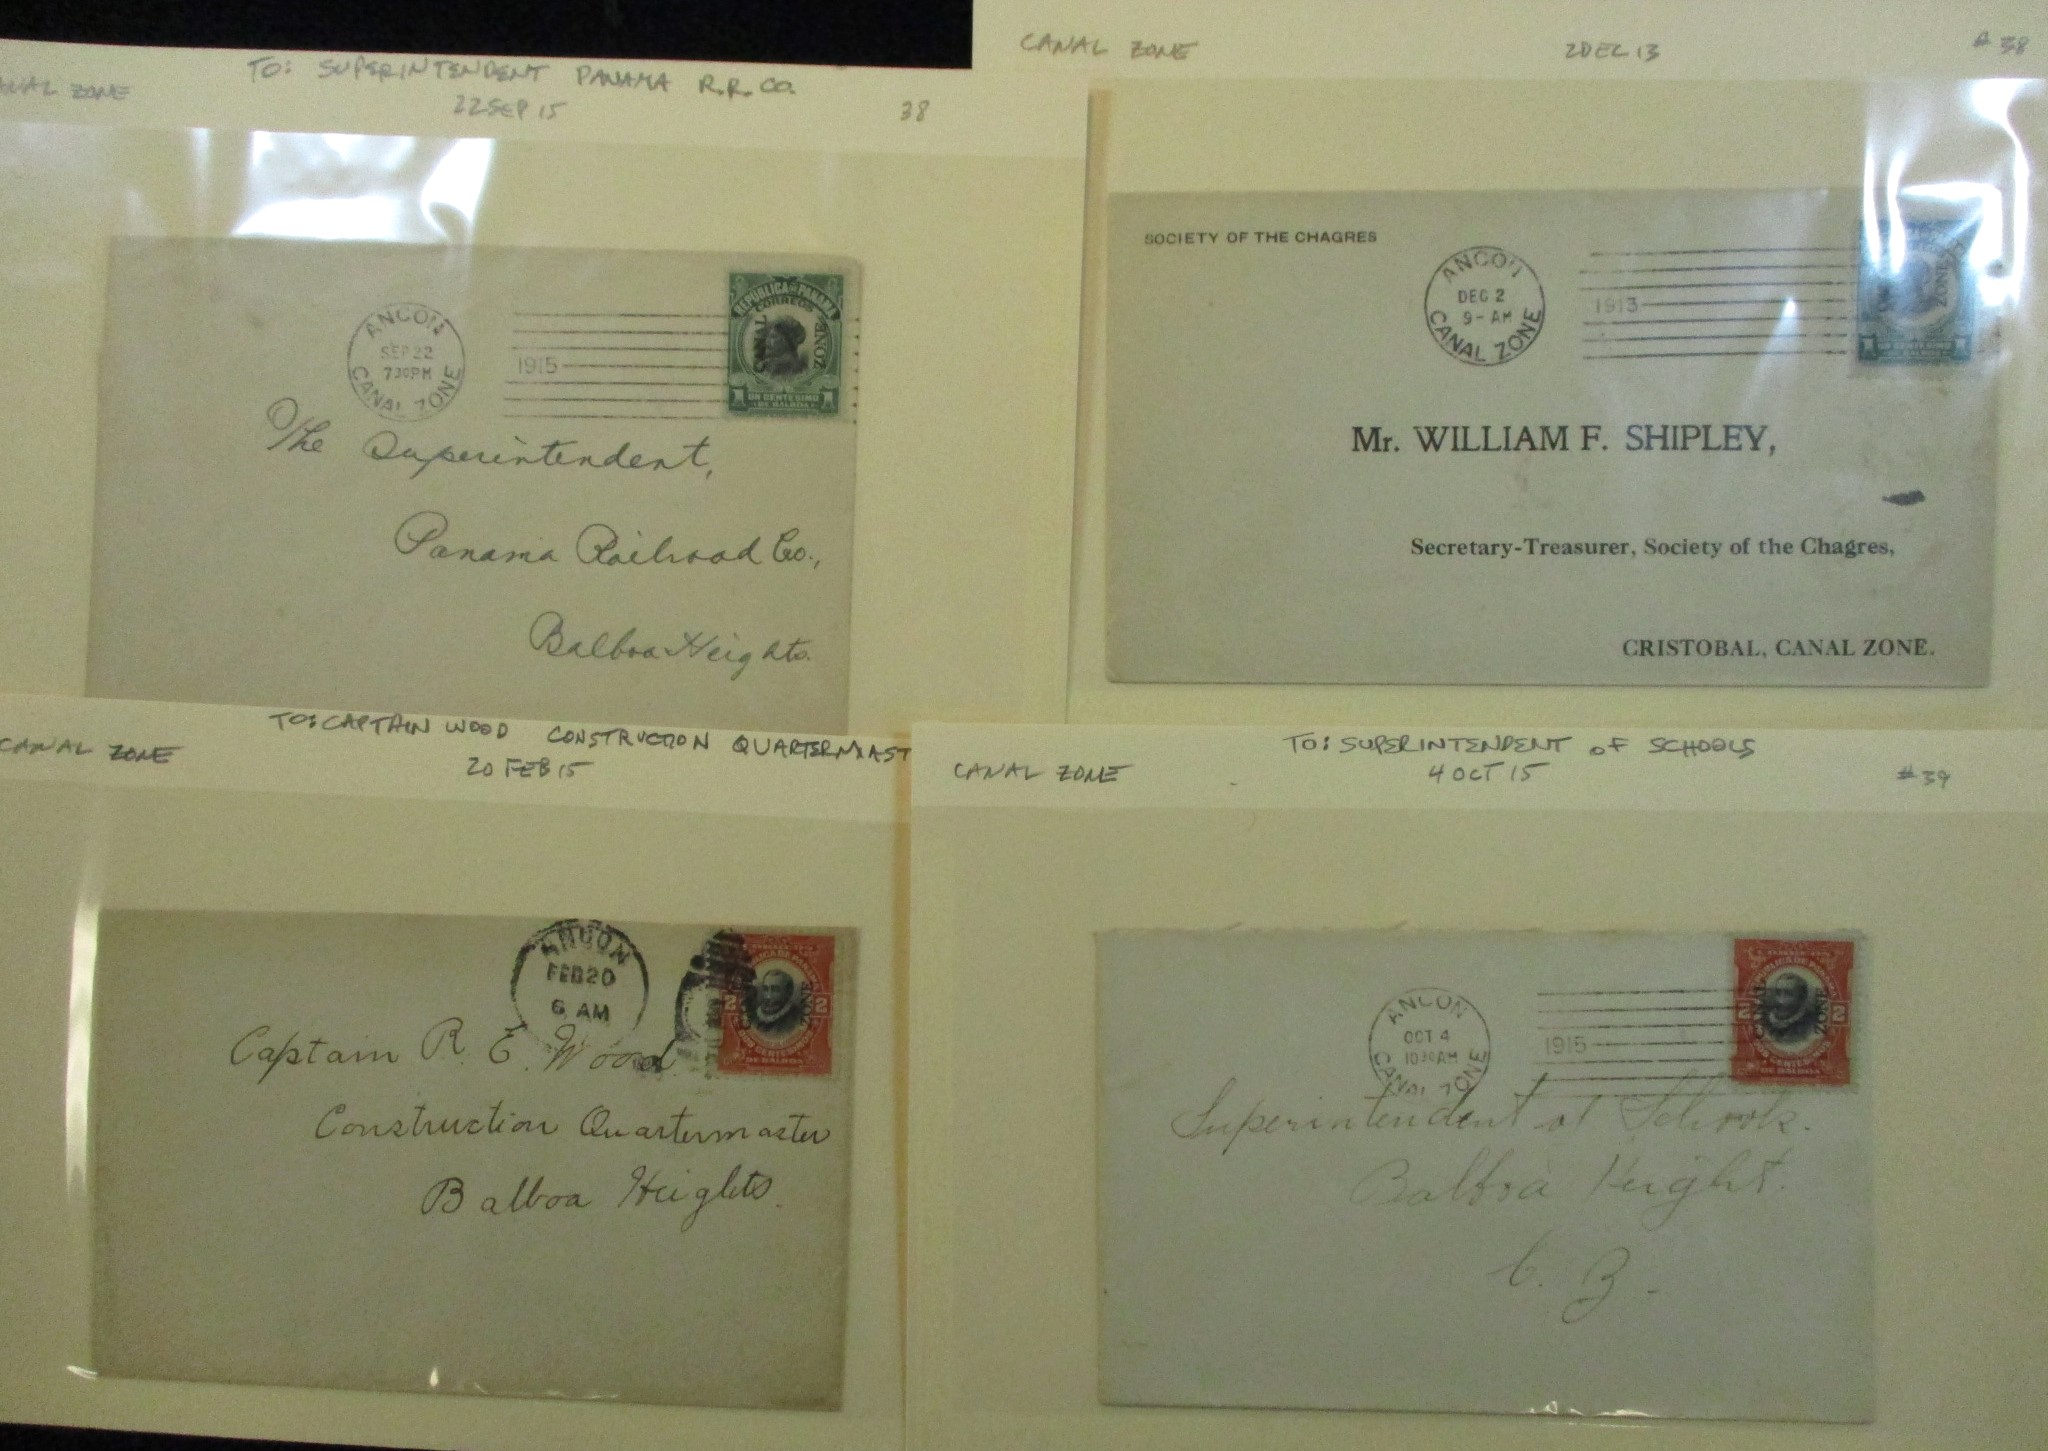 CANAL ZONE
TO: SUPERINTENDENT PANAMA R.R. CO.
22 SEP 15
38
ANCON
SEP 22
730PM
CANAL ZONE
1915
REPUBLICA DE PANAMA
CORREOS
CANAL
ZONE
1 UN CENTESIMO 1
DE BALBOA
The Superintendent,
Panama Railroad Co.,
Balboa Heights.
CANAL ZONE
2 DEC 13
# 38
SOCIETY OF THE CHAGRES
ANCON
DEC 2
9-AM
CANAL ZONE
1913
ZONE
1 UN CENTESIMO 1
Mr. WILLIAM F. SHIPLEY,
Secretary-Treasurer, Society of the Chagres,
CRISTOBAL, CANAL ZONE.
TO: CAPTAIN WOOD CONSTRUCTION QUARTERMAST
CANAL ZONE
20 FEB 15
ANCON
FEB 20
6 AM
2 2
ZONE
DOS CENTESIMOS
DE BALBOA
Captain R. E. Wood
Construction Quartermaster
Balboa Heights.
TO: SUPERINTENDENT OF SCHOOLS
CANAL ZONE
4 OCT 15
#39
ANCON
OCT 4
1030AM
CANAL ZONE
1915
REPUBLICA DE PANAMA
CANAL
ZONE
2 2
DE BALBOA
Superintendent of Schools.
Balboa Height.
C. Z.